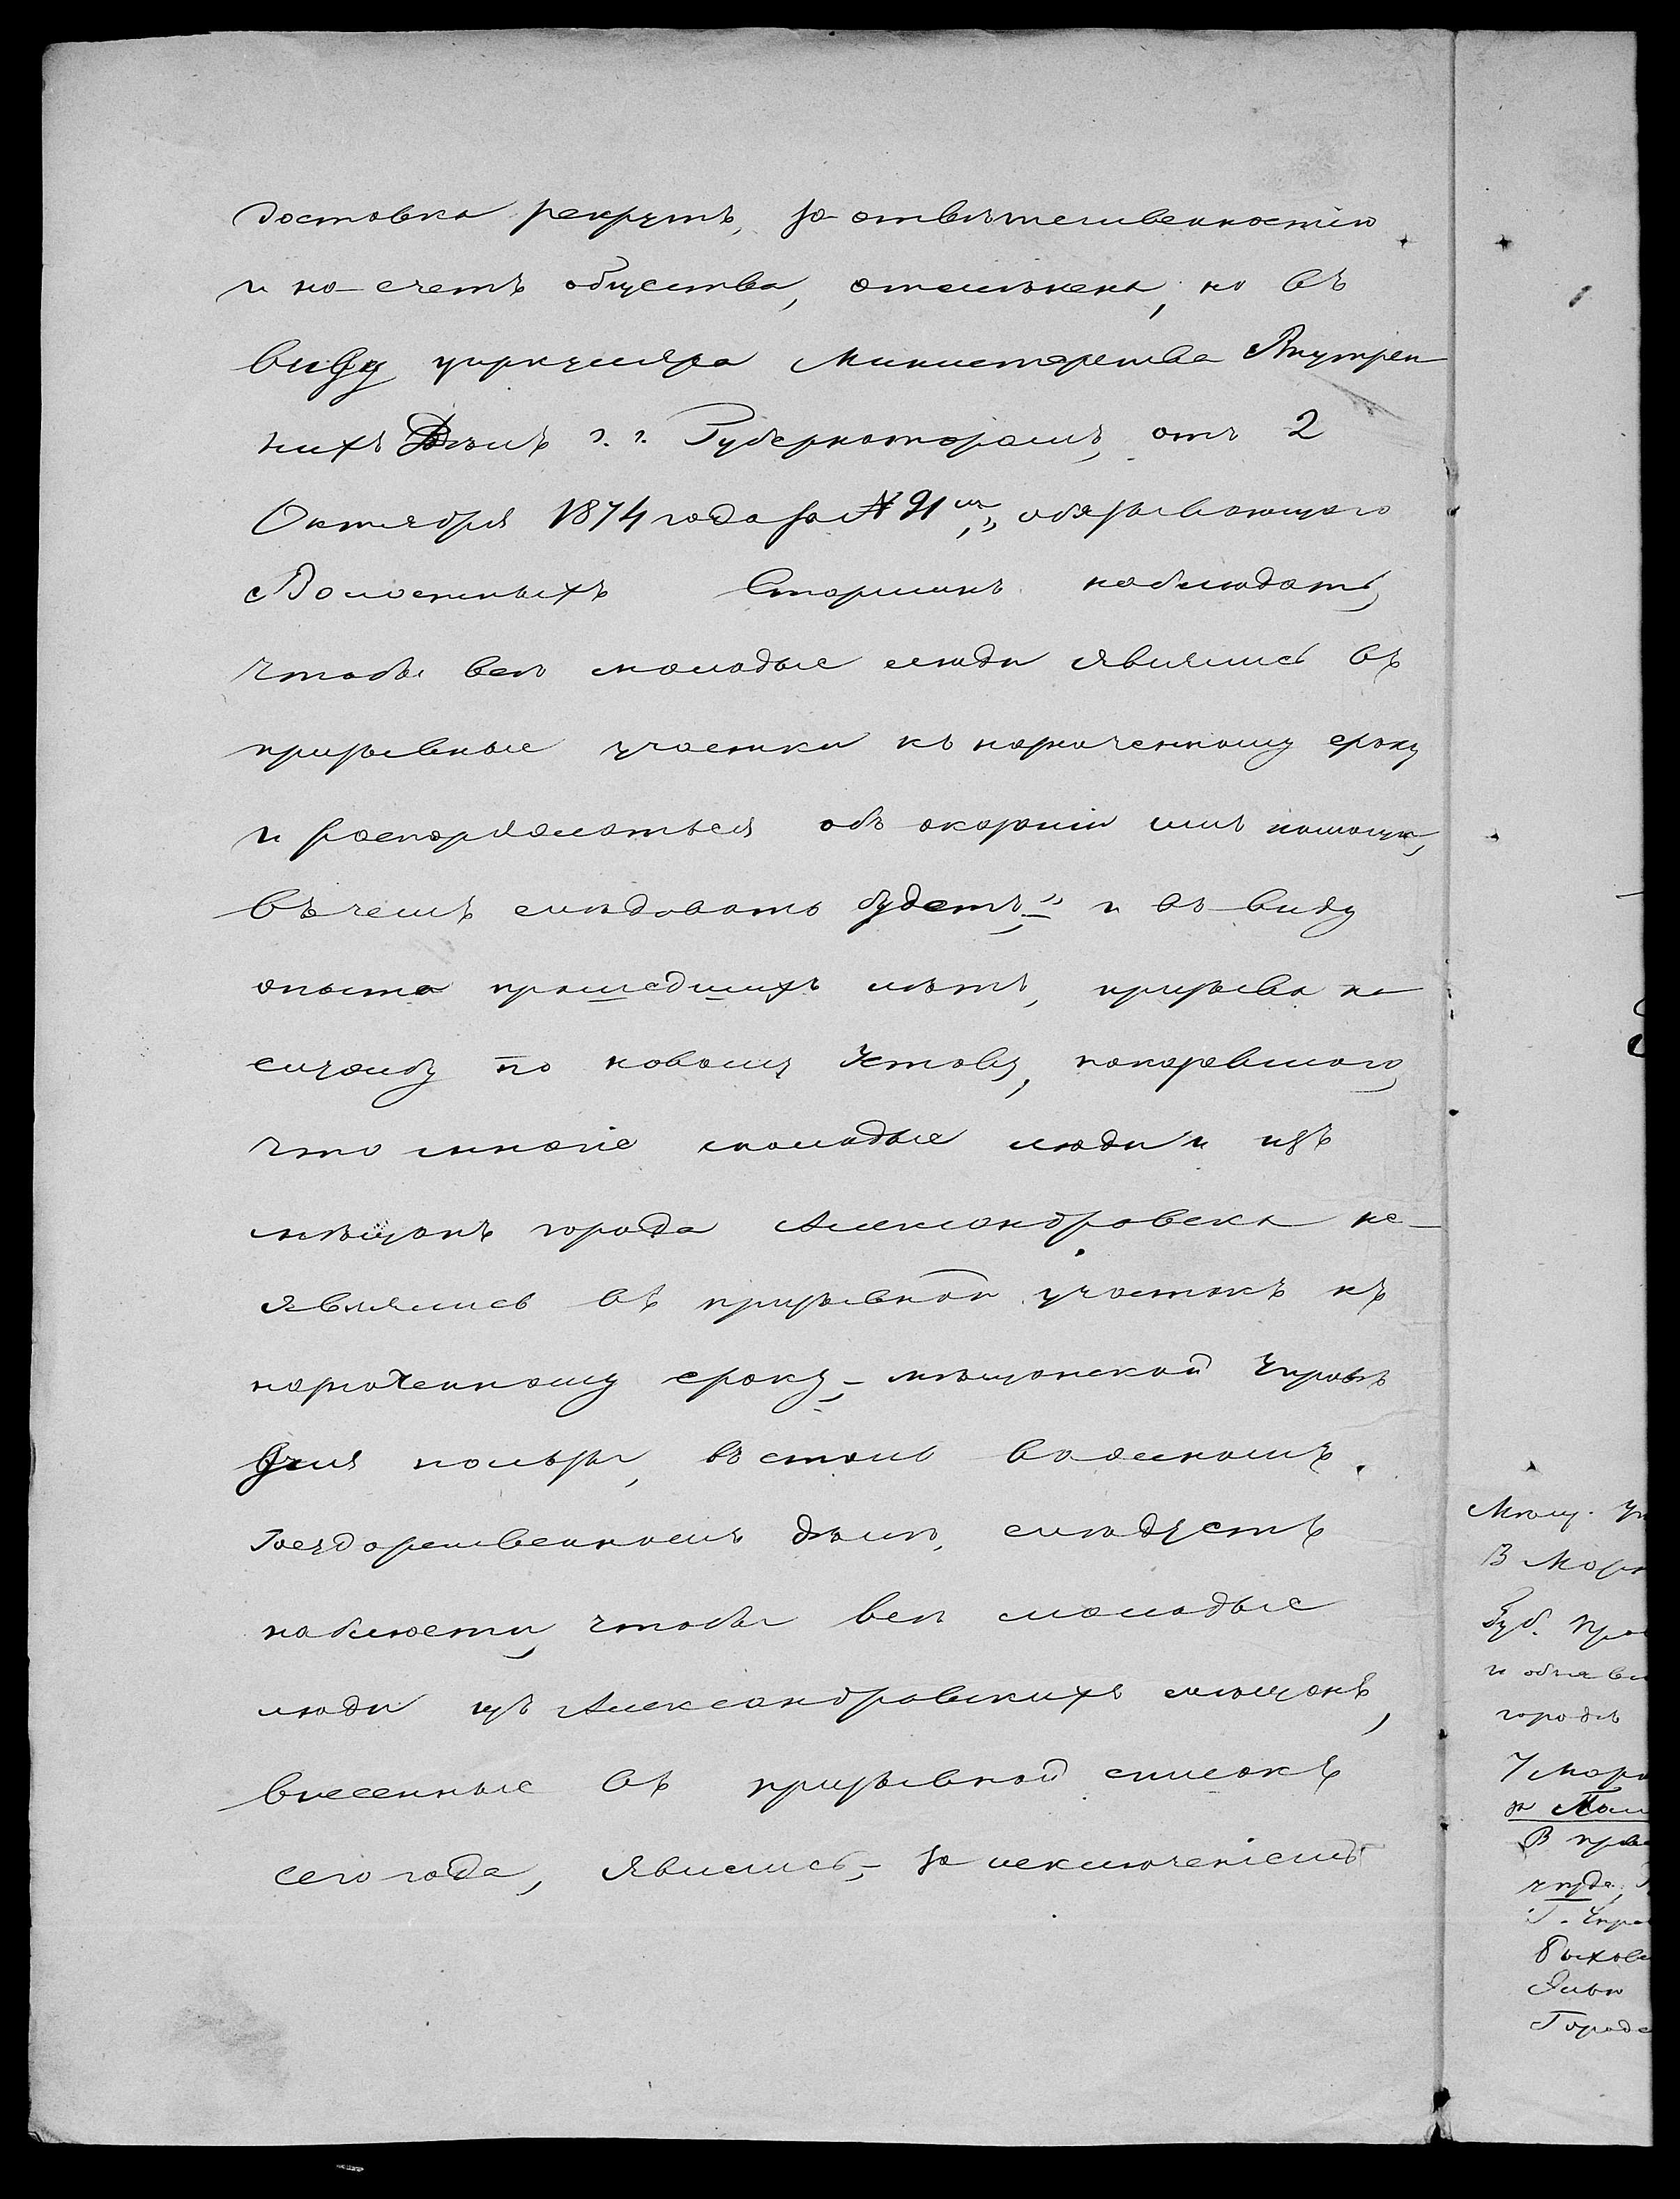 доставка рекрутъ, за отвѣтственностію
и на счетъ общества, отмѣнена, но въ
виду циркуляра Министерства Внутрен
нихъ Дѣлъ г.г. Губернаторамъ, отъ 2
Октября 1874 года за № 91м, „обязывающаго
Волостныхъ Старшинъ наблюдать,
чтобы всѣ молодые люди явились въ
призывные участки къ назначенному сроку
и распоряжаться объ оказаніи имъ помощи,
въ чемъ слѣдовать будетъ" и въ виду
опыта прошедшихъ лѣтъ, призыва къ
служб ѣ по новому Уставу, показавшаго,
что многіе молодые люди и изъ
мѣщанъ города Александровска не
явились въ призывной участокъ къ
назначенному сроку, – мѣщанской Управѣ
для пользы, въ столь важномъ
Государственномъ дѣлѣ, слѣдуетъ
наблюсти, чтобы всѣ молодые
люди изъ Александровскихъ мѣщанъ,
внесенные въ призывной списокъ
сего года, явились, – за исключеніемъ
Мѣщ.
В
Губ.
и
городъ
7
В
Г.